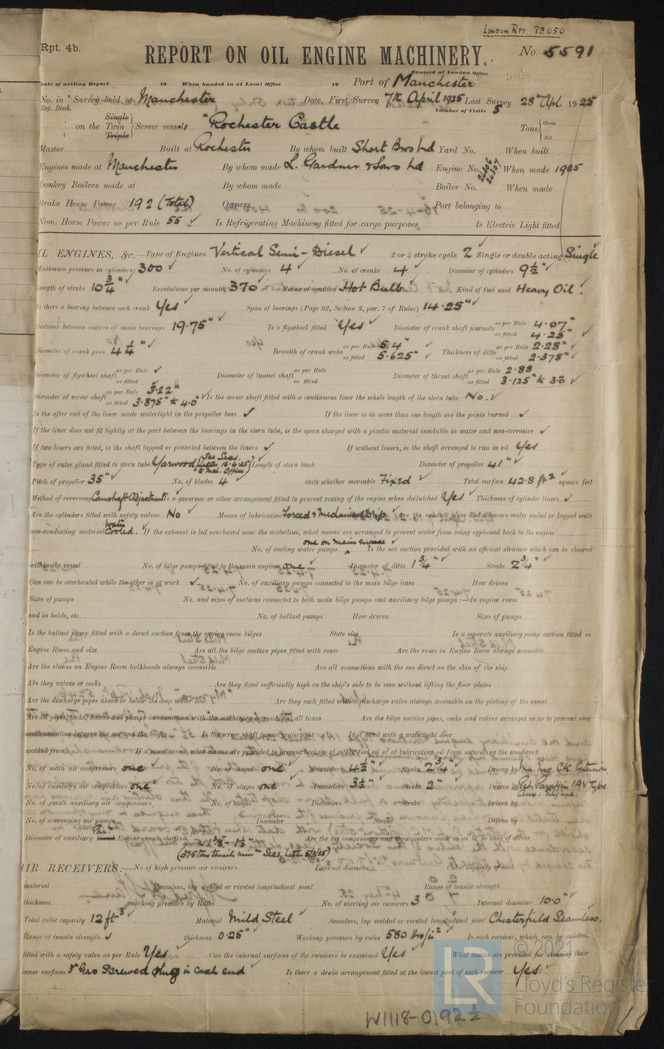 LONDON RPT. 89050
Rpt. 4b.
REPORT ON OIL ENGINE MACHINERY.
No. 5591
Received at London Office
Date of writing Report 19 When handed in at Local Office 19 Port of Manchester
No. in Survey held at Manchester Date, First Survey 7th April 1925 Last Survey 28th Apl 1925
Reg. Book. Number of Visits 5
on the Single Twin Triple Screw vessels "Rochester Castle Tons Gross Net
Master Built at Rochester By whom built Short Bros Ltd Yard No. When built
Engines made at Manchester By whom made L. Gardner & Sons Ltd Engine No. When made 1925
Donkey Boilers made at By whom made Boiler No. When made
Brake Horse Power 192 (Total) Owners Port belonging to
Nom. Horse Power as per Rule 55 Is Refrigerating Machinery fitted for cargo purposes Is Electric Light fitted
OIL ENGINES, &c.—Type of Engines Vertical Semi-Diesel 2 or 4 stroke cycle 2 Single or double acting Single
Maximum pressure in cylinders 300 No. of cylinders 4 No. of cranks 4 Diameter of cylinders 9½"
Length of stroke 10¾" Revolutions per minute 370 Means of ignition Hot Bulb Kind of fuel used Heavy Oil.
Is there a bearing between each crank Yes Span of bearings (Page 92, Section 2, par. 7 of Rules) 14.25"
Distance between centres of main bearings 19.75" Is a flywheel fitted Yes Diameter of crank shaft journals as per Rule 4.07" as fitted 4.25"
Diameter of crank pins 4¼" Breadth of crank webs as per Rule 5.4" as fitted 5.625" Thickness of ditto as per Rule 2.28" as fitted 2.375"
Diameter of flywheel shaft as per Rule as fitted Diameter of tunnel shaft as per Rule as fitted Diameter of thrust shaft as per Rule 2.88 as fitted 3.125" &
Diameter of screw shaft as per Rule 3.22" as fitted 3.875" & 4.0" Is the screw shaft fitted with a continuous liner the whole length of the stern tube No.
Is the after end of the liner made watertight in the propeller boss If the liner is in more than one length are the joints burned
If the liner does not fit tightly at the part between the bearings in the stern tube, is the space charged with a plastic material insoluble in water and non-corrosive
If two liners are fitted, is the shaft lapped or protected between the liners If without liners, is the shaft arranged to run in oil Yes
Type of outer gland fitted to stern tube Yarwood Length of stern bush Diameter of propeller 41"
Pitch of propeller 35" No. of blades 4 state whether moveable Fixed Total surface 42.8 ft² square feet
Method of reversing Camshaft Adjustment Is a governor or other arrangement fitted to prevent racing of the engine when declutched Yes Thickness of cylinder liners
Are the cylinders fitted with safety valves No Means of lubrication Forced & Mechanical Drip Are the exhaust pipes and silencers water cooled or lagged with
non-conducting material Water Cooled. If the exhaust is led overboard near the waterline, what means are arranged to prevent water from being syphoned back to the engine
No. of cooling water pumps one on main engines Is the sea suction provided with an efficient strainer which can be cleared
within the vessel No. of bilge pumps fitted to the main engines one Diameter of ditto 1¾" Stroke 2¾"
Can one be overhauled while the other is at work No. of auxiliary pumps connected to the main bilge lines How driven
Sizes of pumps No. and sizes of suctions connected to both main bilge pumps and auxiliary bilge pumps :—In engine room
and in holds, etc. No. of ballast pumps How driven Sizes of pumps
Is the ballast pump fitted with a direct suction from the engine room bilges State size Is a separate auxiliary pump suction fitted in
Engine Room and size Are all the bilge suction pipes fitted with roses Are the roses in Engine Room always accessible
Are the sluices on Engine Room bulkheads always accessible Are all connections with the sea direct on the skin of the ship
Are they valves or cocks Are they fixed sufficiently high on the ship's side to be seen without lifting the floor plates
Are the discharge pipes above or below the deep water line Are they each fitted with a discharge valve always accessible on the plating of the vessel
Are all pipes, cocks, valves and pumps in connection with the machinery accessible at all times Are the bilge suction pipes, cocks and valves arranged so as to prevent any
communication between the sea and the bilges Is the screw shaft tunnel watertight Is it fitted with a watertight door
worked from If a wood vessel, what means are provided to prevent leakage of either fuel oil or of lubricating oil from saturating the woodwork
No. of main air compressors one No. of stages one Diameters 4½" Stroke 2¾" Driven by
No. of auxiliary air compressors one No. of stages one Diameters 3½" Stroke 2" Driven by
No. of small auxiliary air compressors No. of stages Diameters Stroke Driven by
No. of scavenging air pumps Diameter Stroke Driven by
Diameter of auxiliary
AIR RECEIVERS:—No. of high pressure air receivers Internal diameter
material Seamless, lap welded or riveted longitudinal joint Range of tensile strength
thickness working pressure by Rules No. of starting air receivers 3 Internal diameter 10.0"
Total cubic capacity 12 ft³ Material Mild Steel Seamless, lap welded or riveted longitudinal joint Chesterfield Seamless.
Range of tensile strength thickness 0.25" Working pressure by rules 580 lbs/in² Is each receiver, which can be isolated,
fitted with a safety valve as per Rule Yes Can the internal surfaces of the receivers be examined Yes What means are provided for cleaning their
inner surfaces 3" Gas Screwed plug in each end Is there a drain arrangement fitted at the lowest part of each receiver Yes
© 2021
Lloyd's Register
Foundation
LR
W1118-0192½